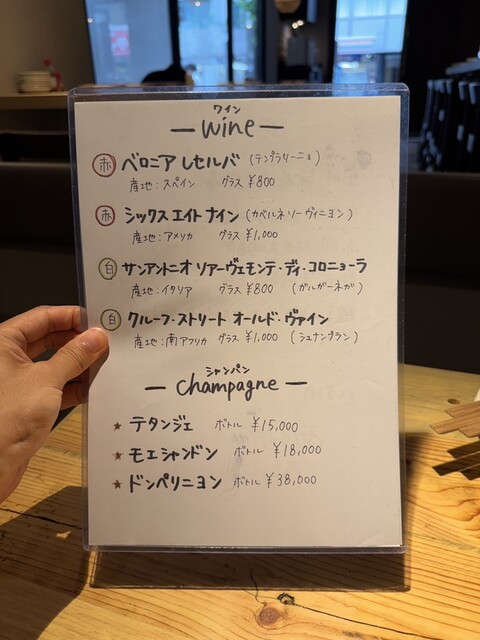 ワイン
— wine —
赤 ベロニア レセルバ (テンプラリーニョ)
産地:スペイン グラス ¥800
赤 シックス エイト ナイン (カベルネソーヴィニヨン)
産地:アメリカ グラス ¥1,000
白 サンアントニオ ソアーヴェモンテ・ディ・コロニョーラ
産地:イタリア グラス ¥800 (ガルガーネガ)
白 クルーフ・ストリート オールド・ヴァイン
産地:南アフリカ グラス ¥1,000 (シュナンブラン)
シャンパン
— champagne —
★ テタンジェ ボトル ¥15,000
★ モエシャンドン ボトル ¥18,000
★ ドンペリニヨン ボトル ¥38,000